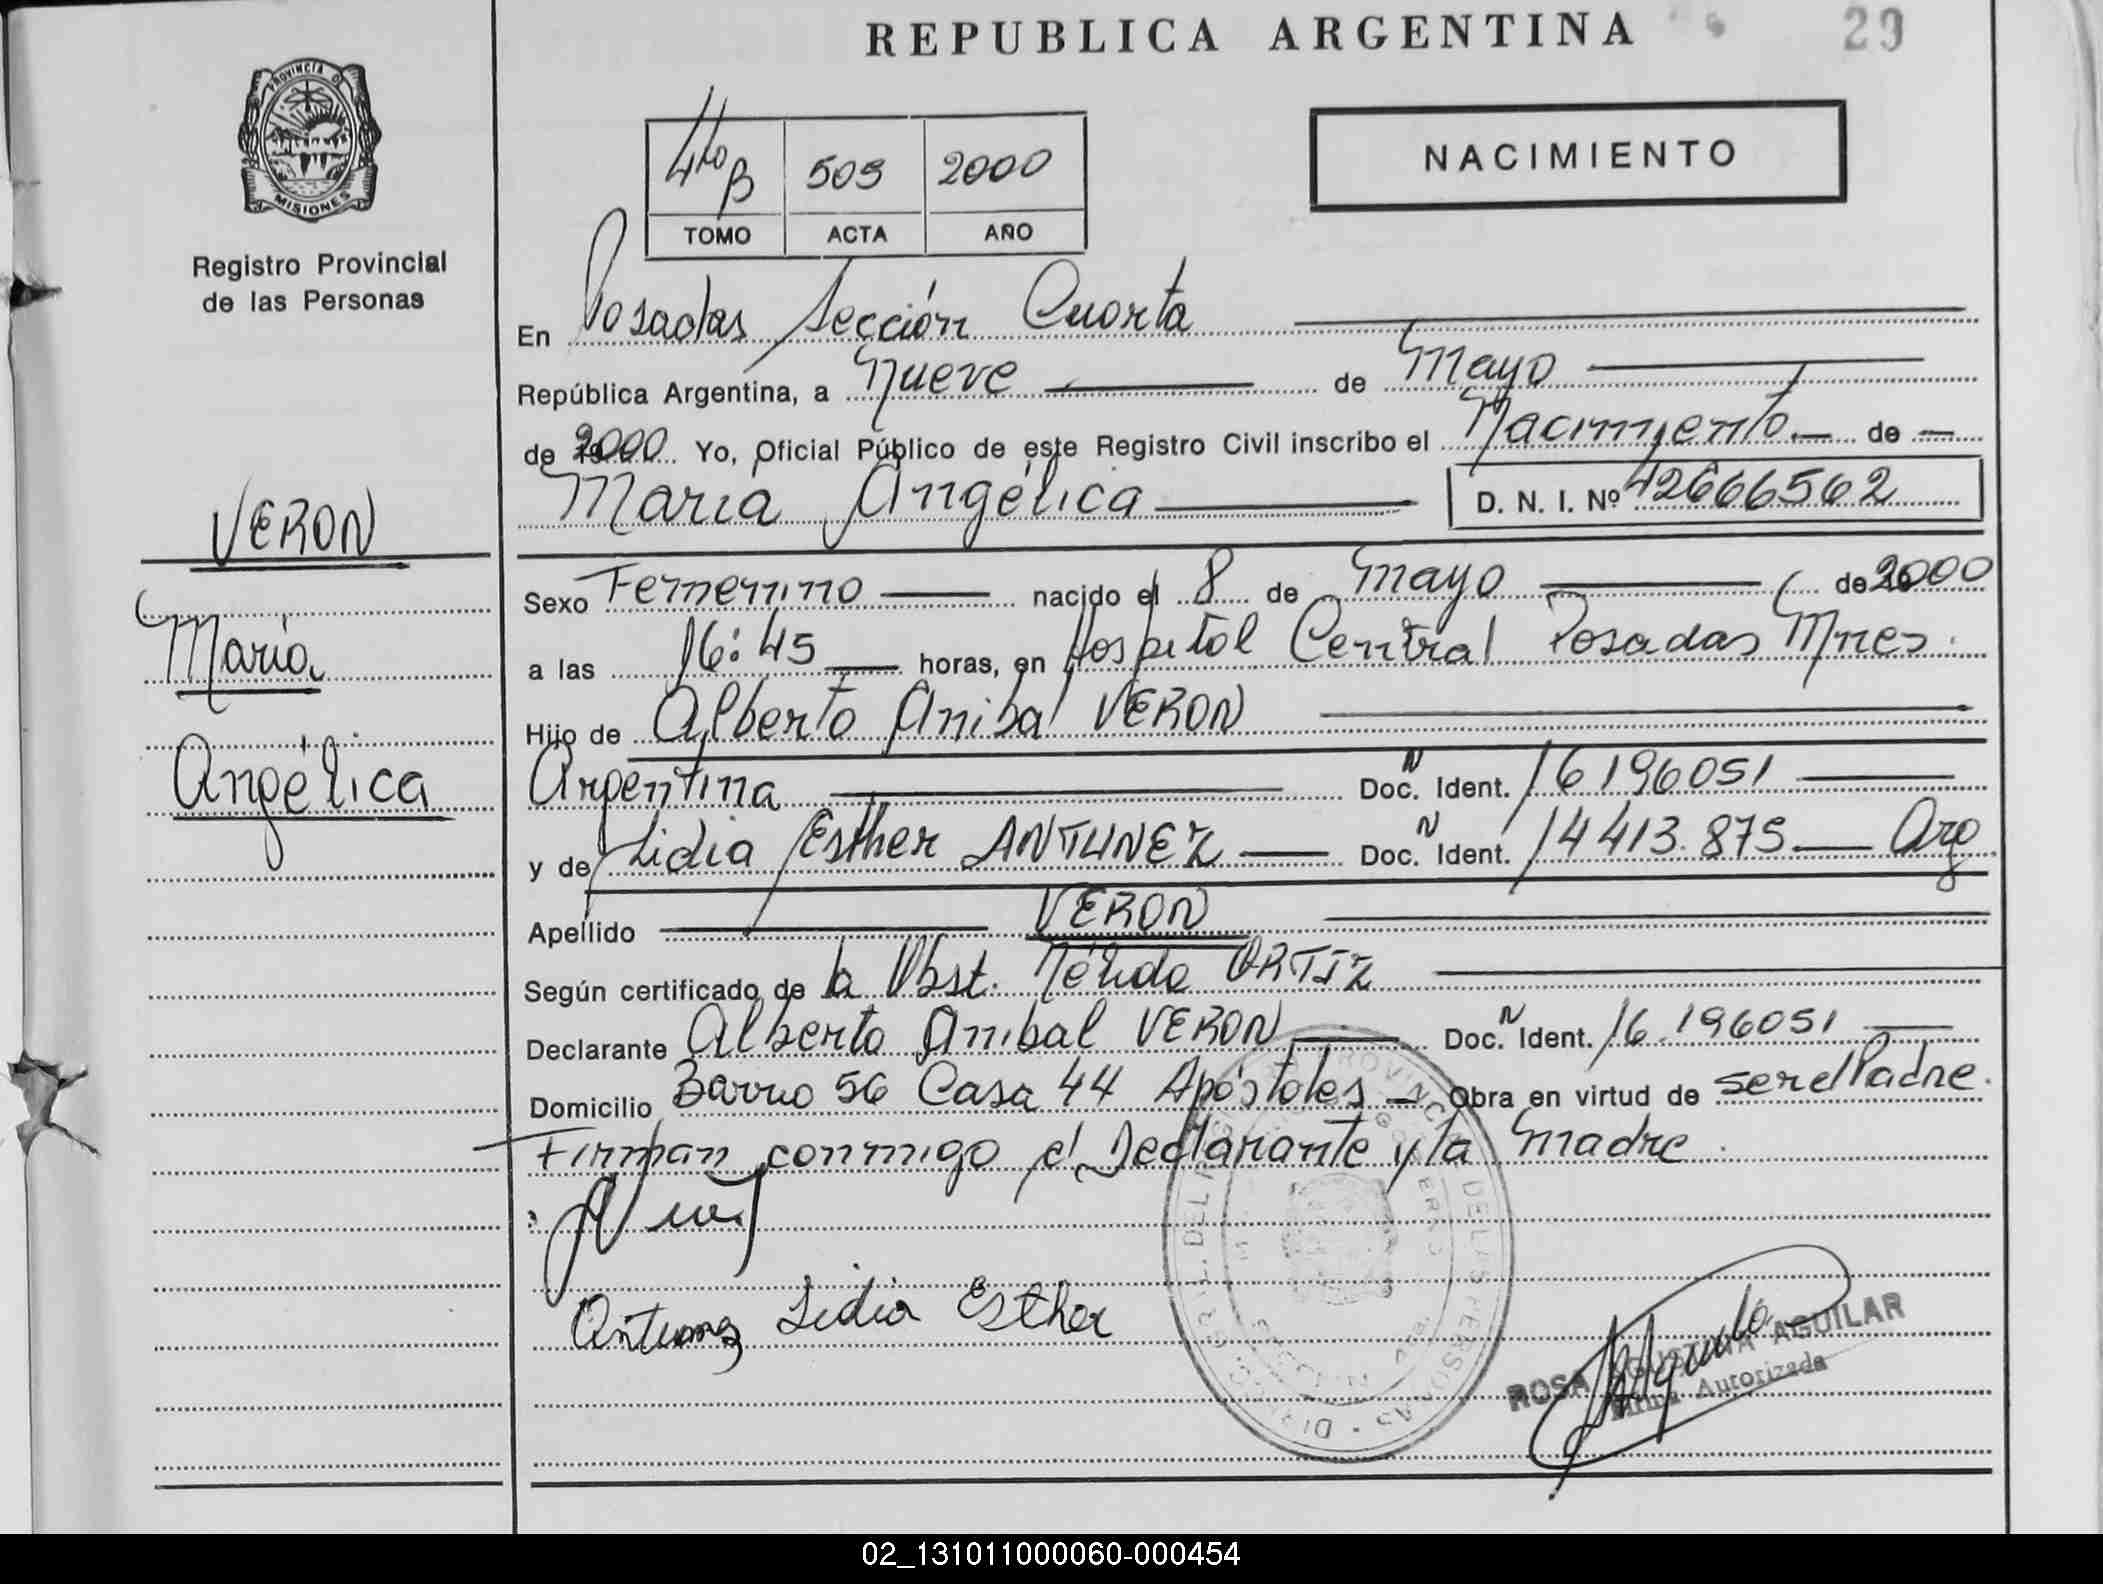 REPUBLICA ARGENTINA
29
PROVINCIA DE
MISIONES
Registro Provincial
de las Personas
4to B 509 2000
TOMO ACTA AÑO
NACIMIENTO
En Posadas Sección Cuarta
República Argentina, a Nueve de Mayo
de 2000 Yo, Oficial Público de este Registro Civil inscribo el Nacimiento de
María Angélica D. N. I. Nº 42666562
VERON
María
Angélica
Sexo Femenino nacido el 8 de Mayo de 2000
a las 16:45 horas, en Hospital Central Posadas Mnes.
Hijo de Alberto Anibal VERON
Argentina Doc. N Ident. 16196051
y de Lidia Esther ANTUNEZ Doc. N Ident. 14413.875 Arg
Apellido VERON
Según certificado de la Obst. Nélida ORTIZ
Declarante Alberto Anibal VERON Doc. N Ident. 16.196051
Domicilio Barrio 56 Casa 44 Apóstoles Obra en virtud de ser el Padre.
Firman conmigo el Declarante y la Madre.
Antunez Lidia Esther
ROSA AGUSTINA AGUILAR
Firma Autorizada
02_131011000060-000454